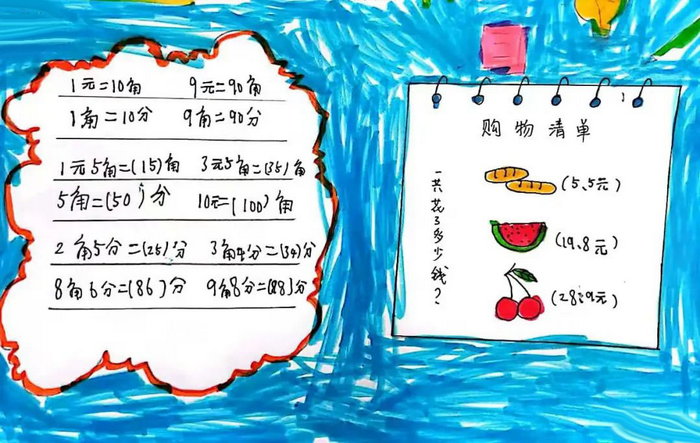 1元=10角 9元=90角
1角=10分 9角=90分
1元5角=(15)角 3元5角=(35)角
5角=(50)分 10元=(100)角
2角5分=(25)分 3角4分=(34)分
8角6分=(86)分 9角8分=(88)分
购物清单
一共花了多少钱?
(5.5元)
(19.8元)
(28.9元)